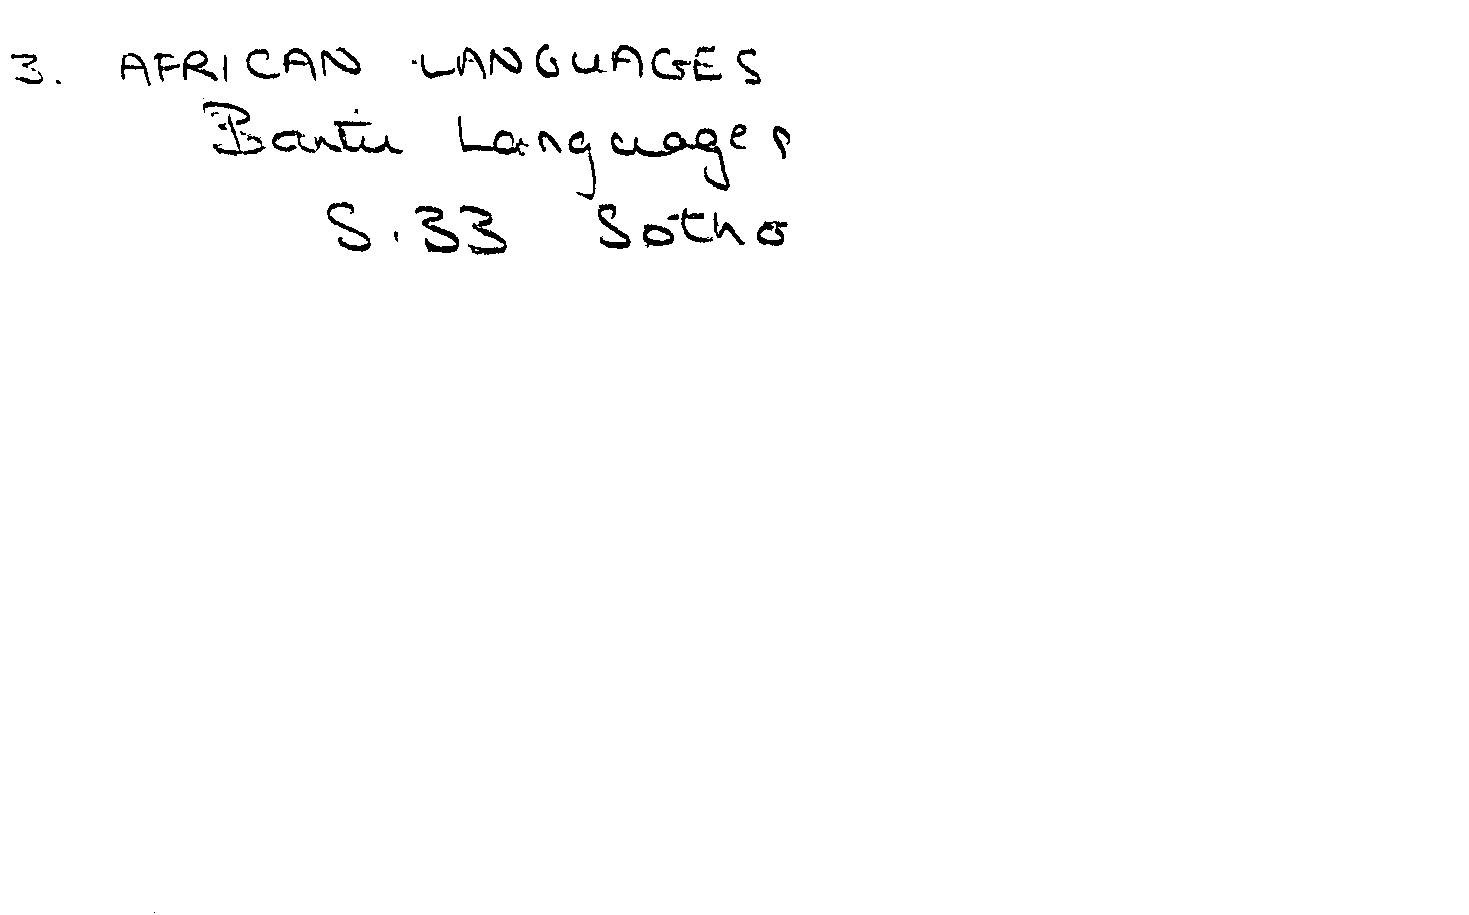 3. AFRICAN LANGUAGES
Bantu Languages
S.33 Sotho